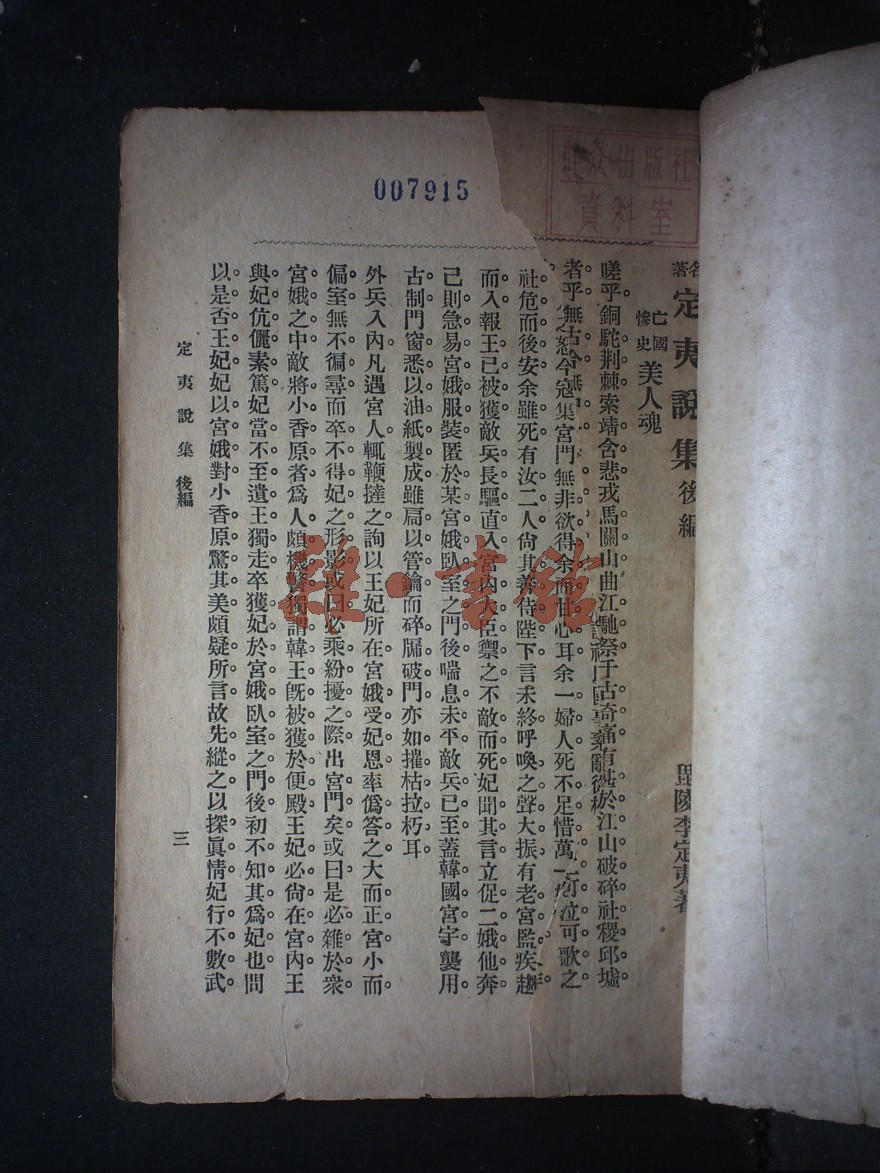 007915
群众出版社
資料室
名著 定夷說集 後編
毘陵李定夷著
亡國慘史 美人魂
嗟乎銅駝荆棘索靖含悲戎馬關山曲江馳祭千古奇痛有甚於江山破碎社稷邱墟
者乎無古今無
今寇集宮門無非欲得余而甘心耳余一婦人死不足惜萬一
泣可歌之
社危而後安余雖死有汝二人尙其善侍陛下言未終呼喚之聲大振有老宮監疾趨
而入報王已被獲敵兵長驅直入宮內大臣禦之不敵而死妃聞其言立促二娥他奔
己則急易宮娥服裝匿於某宮娥臥室之門後喘息未平敵兵已至蓋韓國宮宇襲用
古制門窗悉以油紙製成雖扃以管鑰而碎牖破門亦如摧枯拉朽耳
外兵入內凡遇宮人輒鞭撻之詢以王妃所在宮娥受妃恩率僞答之大而正宮小而
偏室無不徧尋而卒不得妃之形影或曰必乘紛擾之際出宮門矣或曰是必雜於衆
宮娥之中敵將小香原者爲人頗機警獨謂韓王旣被獲於便殿王妃必尙在宮內王
與妃伉儷素篤妃當不至遺王獨走卒獲妃於宮娥臥室之門後初不知其爲妃也問
以是否王妃妃以宮娥對小香原驚其美頗疑所言故先縱之以探眞情妃行不數武
定夷說集 後編
三
雜·書館